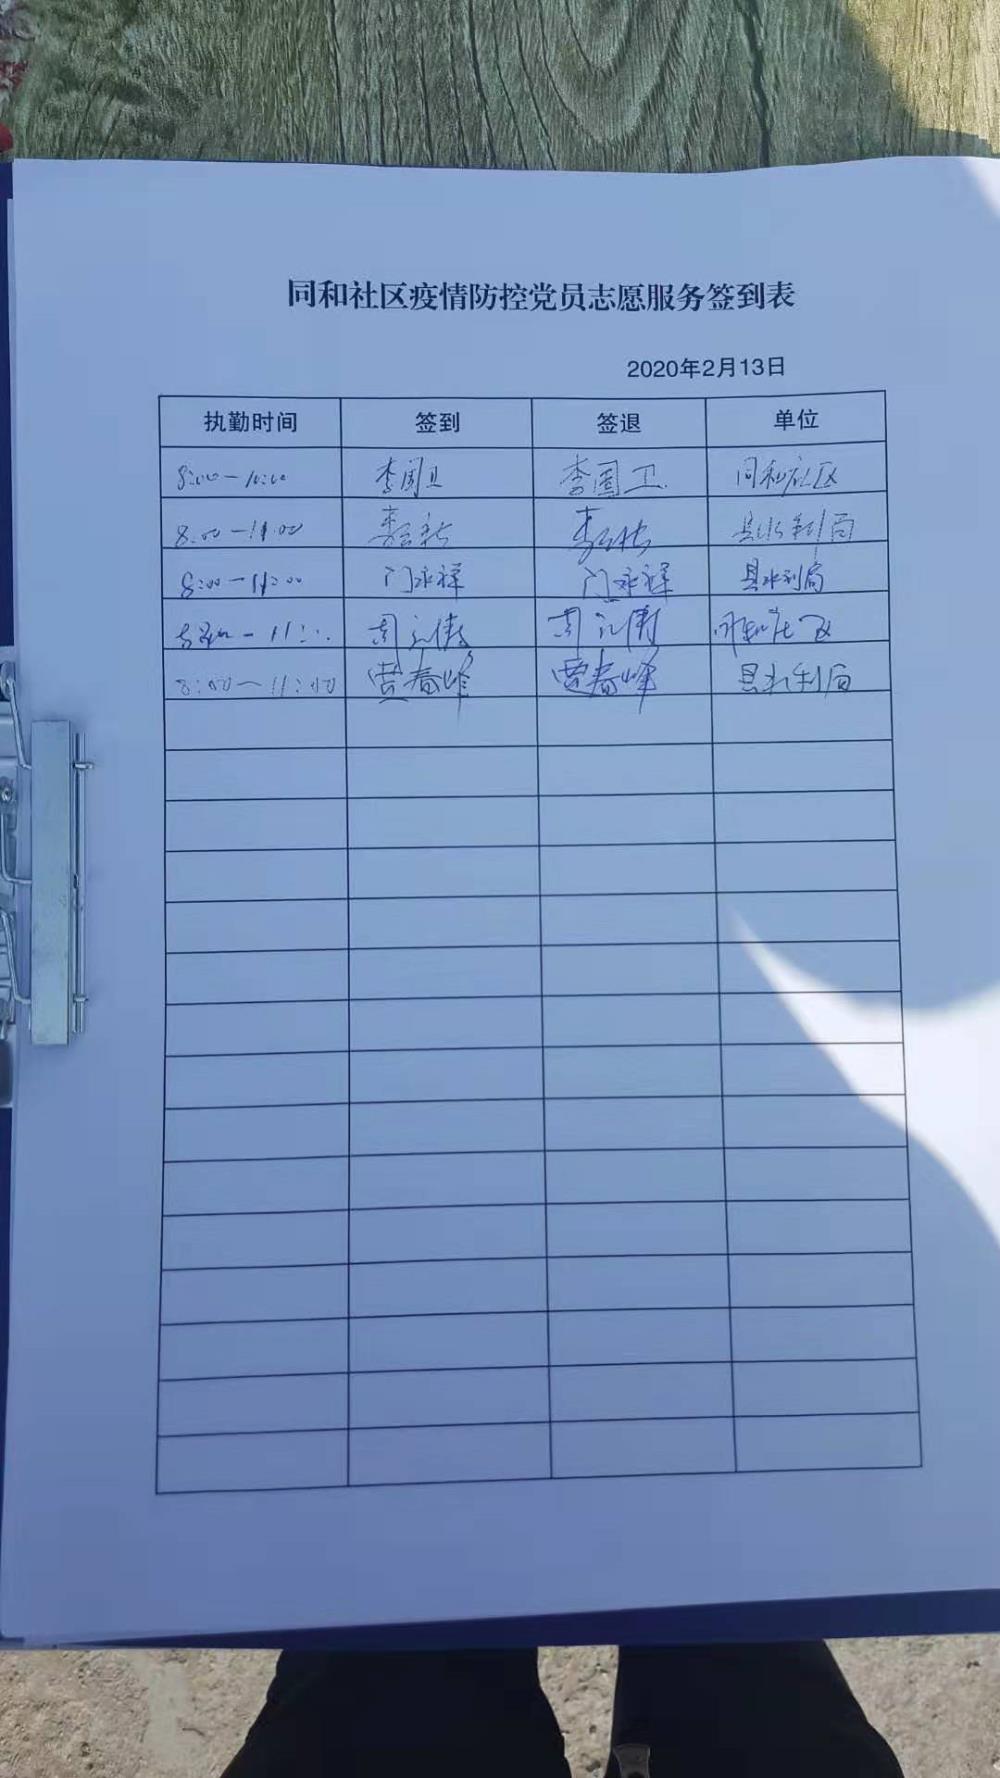 同和社区疫情防控党员志愿服务签到表
2020年2月13日
执勤时间 签到 签退 单位
8:00-11:00 李国卫 李国卫 同和社区
8:00-11:00 县水利局
8:00-11:00 门永祥 门永祥 县水利局
周 周
8:00-11:00 贾春峰 贾春峰 县水利局